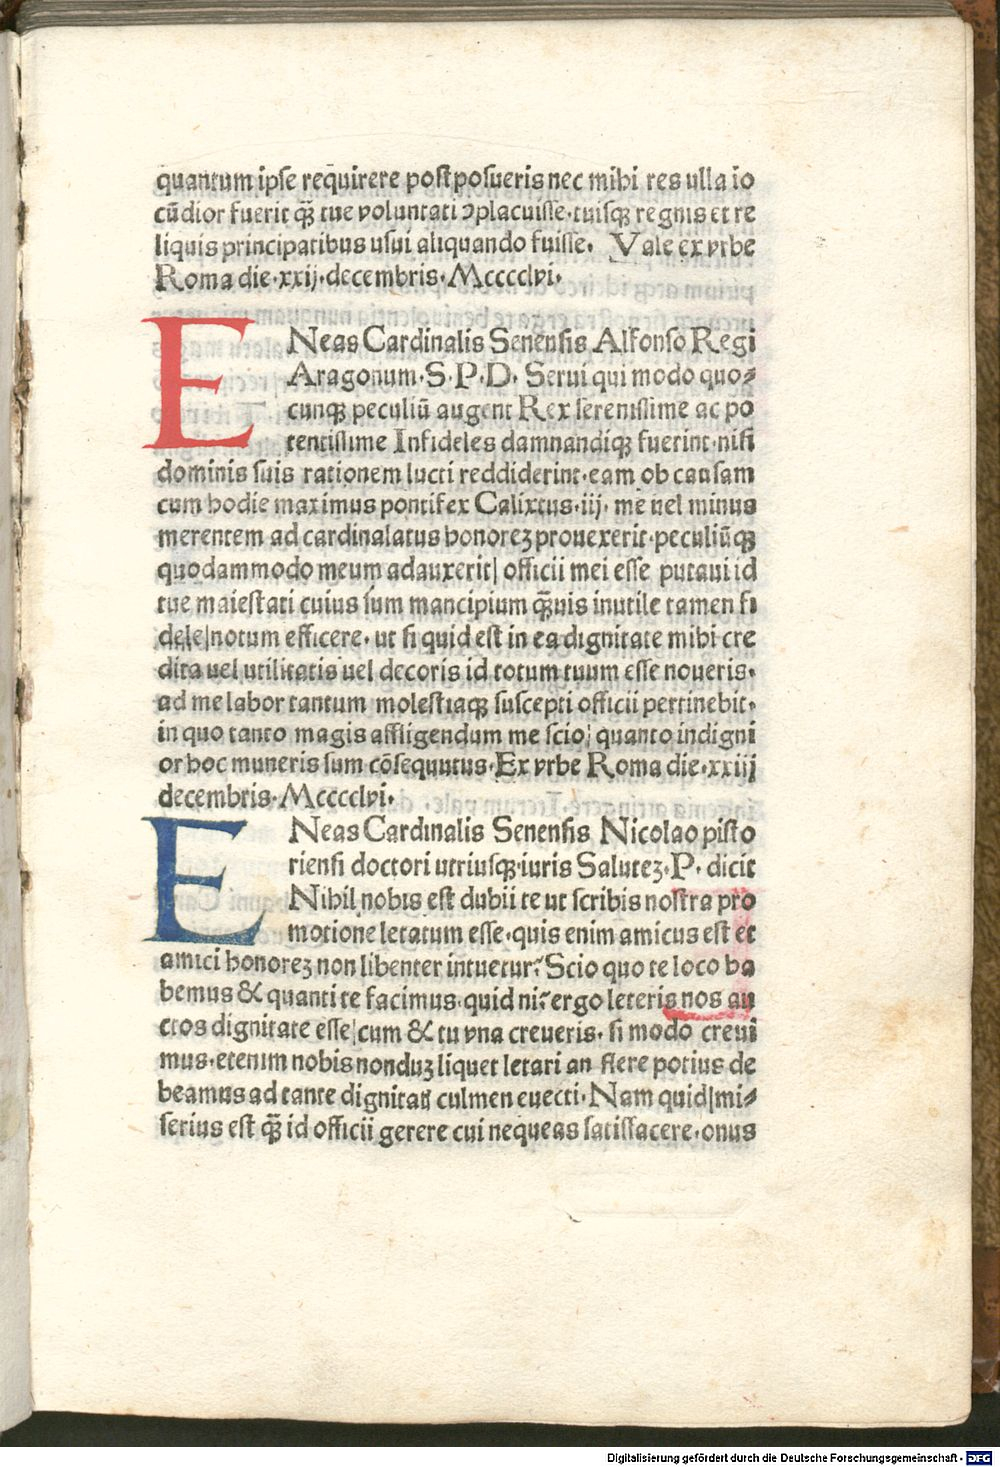 quantum ipse requirere postposueris nec mihi res ulla io
cūdior fuerit q̄ꝫ tue voluntati ↄplacuisse·tuisqꝫ regnis et re
liquis principatibus usui aliquando fuisse. Vale ex vrbe
Roma die·xxij·decembris·Mcccclvi.
ENeas Cardinalis Senensis Alfonso Regi
Aragonum·S·P·D· Serui qui modo quo⸗
cunqꝫ peculiū augent Rex serenissime ac po
tentissime Infideles damnandiqꝫ fuerint·nisi
dominis suis rationem lucri reddiderint·eam ob causam
cum hodie maximus pontifex Calixtus·iij· me uel minus
merentem ad cardinalatus honoreꝫ prouexerit·peculiūqꝫ
quodammodo meum adauxerit| officii mei esse putaui id
tue maiestati cuius sum mancipium q̄ꝫuis inutile tamen fi
dele|notum efficere· ut si quid est in ea dignitate mihi cre
dita uel utilitatis uel decoris id totum tuum esse noueris·
ad me labor tantum molestiaqꝫ suscepti officii pertinebit·
in quo tanto magis affligendum me scio| quanto indigni
or hoc muneris sum cōsequutus·Ex vrbe Roma die·xxiij
decembris·Mcccclvi·
ENeas Cardinalis Senensis Nicolao pisto
riensi doctori utriusqꝫ·iuris Saluteꝫ·P· dicit
Nihil nobis est dubii te ut scribis nostra pro
motione letatum esse·quis enim amicus est et
amici honoreꝫ non libenter intuetur? Scio quo te loco ha
bemus & quanti te facimus·quid ni? ergo leteris nos au
ctos dignitate esse|cum & tu vna creueris· si modo creui
mus·etenim nobis nonduꝫ liquet letari an flere potius de
beamus ad tante dignitatis culmen euecti·Nam quid|mi⸗
serius est q̄ꝫ id officii gerere cui nequeas satisfacere·onus
Digitalisierung gefördert durch die Deutsche Forschungsgemeinschaft - DFG